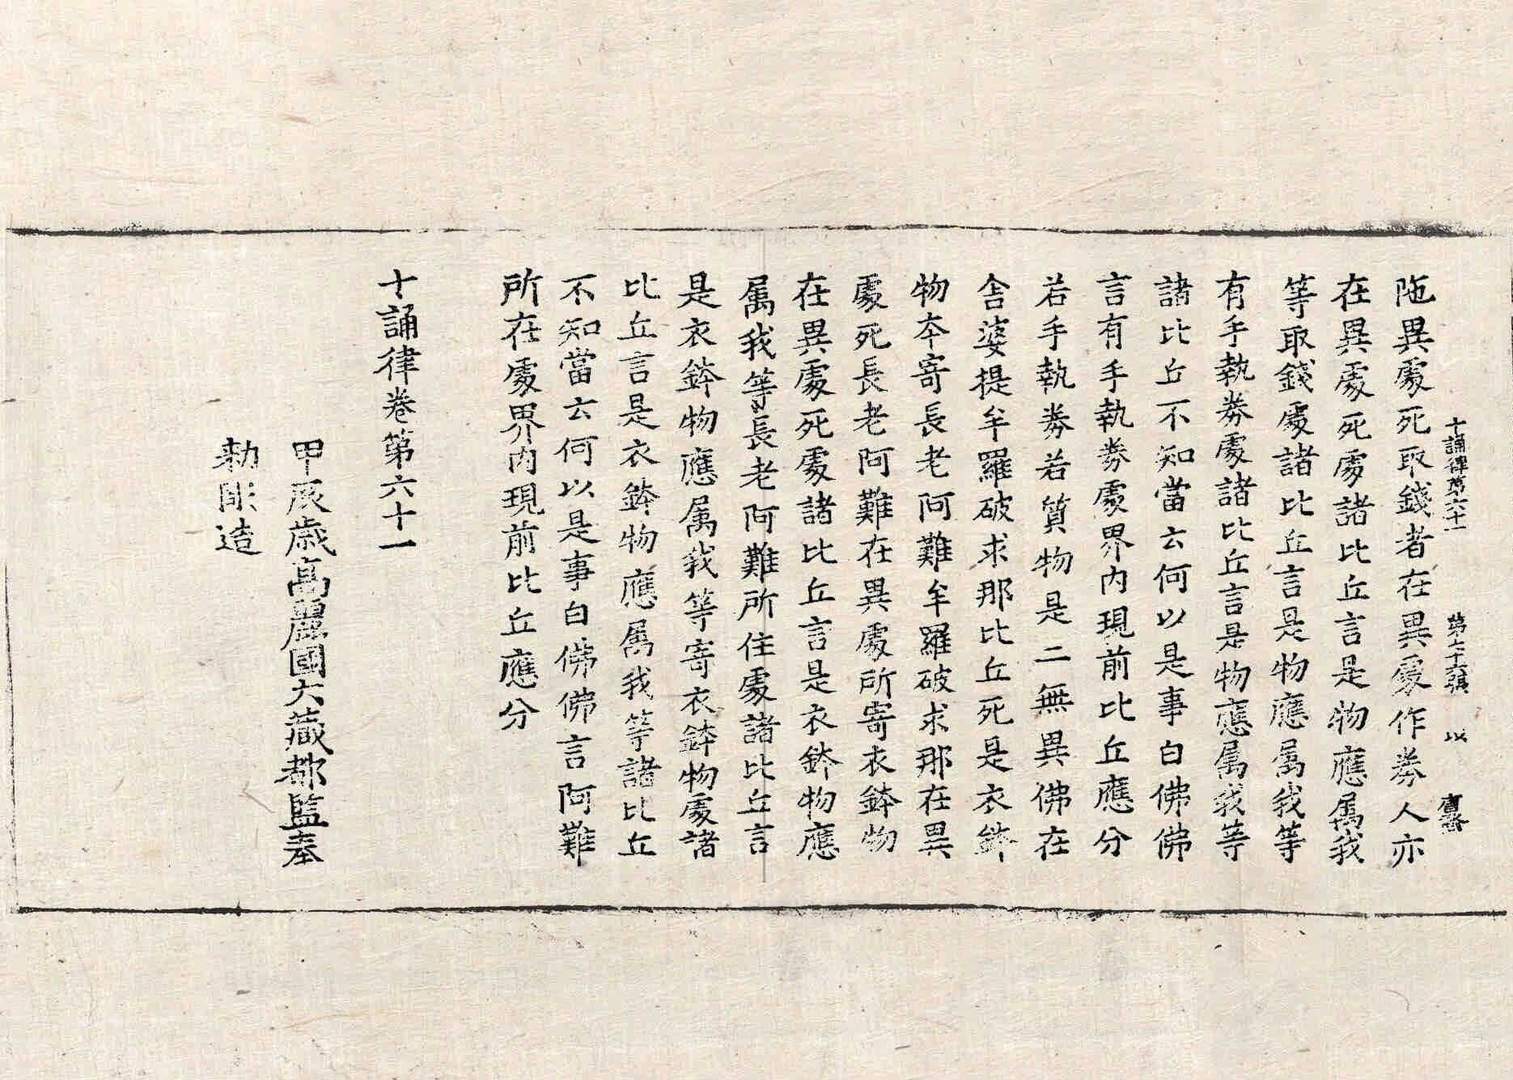 十誦律第六十一 第七十張 以
陁異處死取錢者在異處作券人亦
在異處死處諸比丘言是物應属我
等取錢處諸比丘言是物應属我等
有手執券處諸比丘言是物應属我等
諸比丘不知當云何以是事白佛佛
言有手執券處界內現前比丘應分
若手執券若質物是二無異佛在
舍婆提牟羅破求那比丘死是衣鉢
物本寄長老阿難牟羅破求那在異
處死長老阿難在異處所寄衣鉢物
在異處死處諸比丘言是衣鉢物應
属我等長老阿難所住處諸比丘言
是衣鉢物應属我等寄衣鉢物處諸
比丘言是衣鉢物應属我等諸比丘
不知當云何以是事白佛佛言阿難
所在處界內現前比丘應分
十誦律卷第六十一
甲辰歳高麗國大藏都監奉
勅彫造